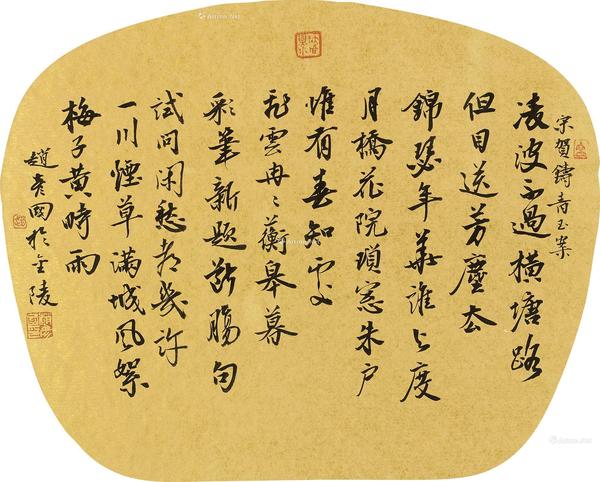 宋賀鑄青玉案
凌波不過橫塘路
但目送芳塵去
錦瑟年華誰与度
月橋花院瑣窓朱戶
惟有春知處
飛雲冉〻蘅皋暮
彩筆新題斷腸句
試問閑愁都幾許
一川煙草滿城風絮
梅子黃時雨
趙彥國於金陵
Artron.Net